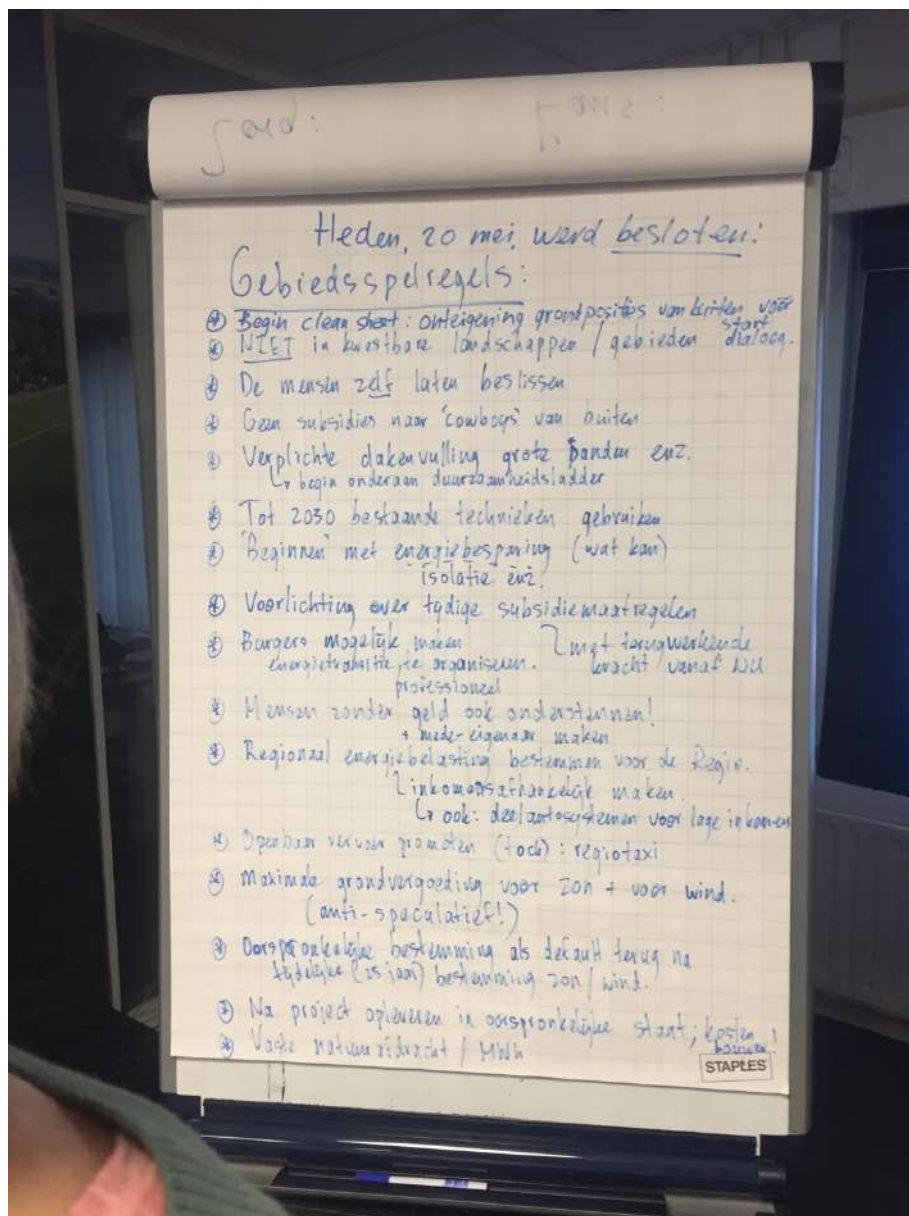 Heden, 20 mei, werd besloten:
Gebiedsspelregels:
* Begin clean sheet: onteigening grondposities van buiten vóór
start dialoog.
* NIET in kwetsbare landschappen / gebieden
* De mensen zelf laten beslissen
* Geen subsidies naar 'cowboys' van buiten
* Verplichte dakenvulling grote panden enz.
↳ begin onderaan duurzaamheidsladder
* Tot 2030 bestaande technieken gebruiken
* 'Beginnen' met energiebesparing (wat kan)
isolatie enz.
* Voorlichting over tijdige subsidiemaatregelen
met terugwerkende
kracht vanaf NU
* Burgers mogelijk maken
energietransitie te organiseren.
professioneel
* Mensen zonder geld ook ondersteunen!
+ mede-eigenaar maken
* Regionaal energiebelasting bestemmen voor de Regio.
inkomensafhankelijk maken.
↳ ook: deelautosystemen voor lage inkomens
* Openbaar vervoer promoten (toch): regiotaxi
* Maximale grondvergoeding voor zon + voor wind.
(anti-speculatief!)
* Oorspronkelijke bestemming als default terug na
tijdelijke (25 jaar) bestemming zon / wind.
* Na project opleveren in oorspronkelijke staat; kosten
bouwer.
* Vaste natuurafdracht / MWh
STAPLES